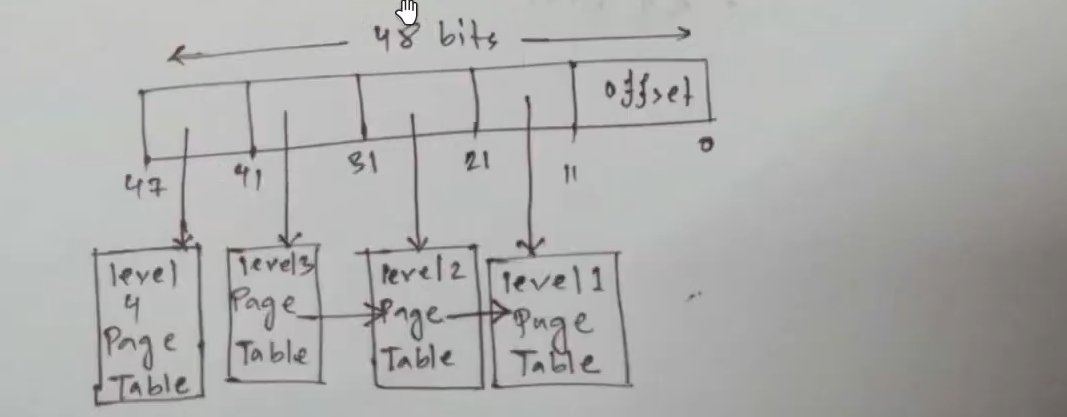 48 bits
offset
47 41 31 21 11 0
level
4
Page
Table
level3
Page
Table
level2
Page
Table
level1
Page
Table